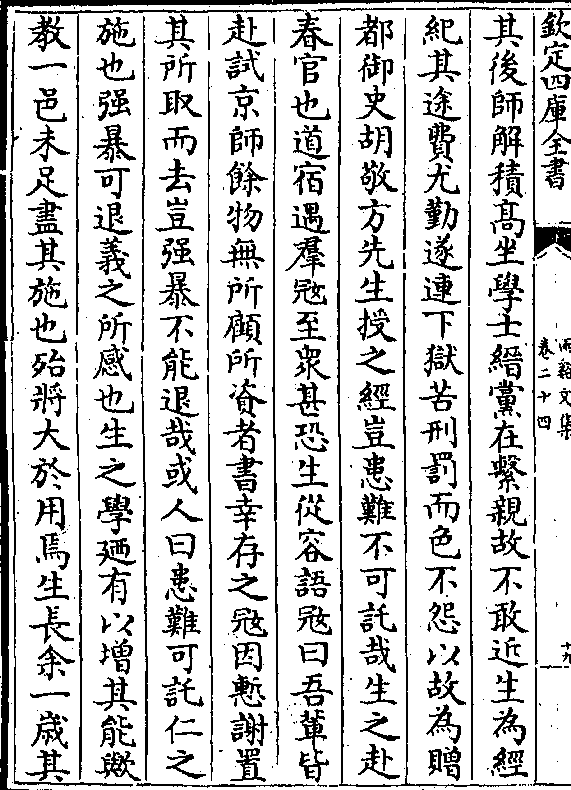 欽定四庫全書
兩谿文集
卷二十四
十九
其後師解積髙坐學士縉黨在繫親故不敢近生為經
紀其途費尤勤遂連下獄苦刑罰而色不怨以故為贈
都御史胡敬方先生授之經豈患難不可託哉生之赴
春官也道宿遇羣寇至衆甚恐生從容語寇曰吾輩皆
赴試京師餘物無所顧所資者書幸存之寇因慙謝置
其所取而去豈强暴不能退哉或人曰患難可託仁之
施也强暴可退義之所感也生之學廼有以增其能歟
教一邑未足盡其施也殆將大於用焉生長余一歳其